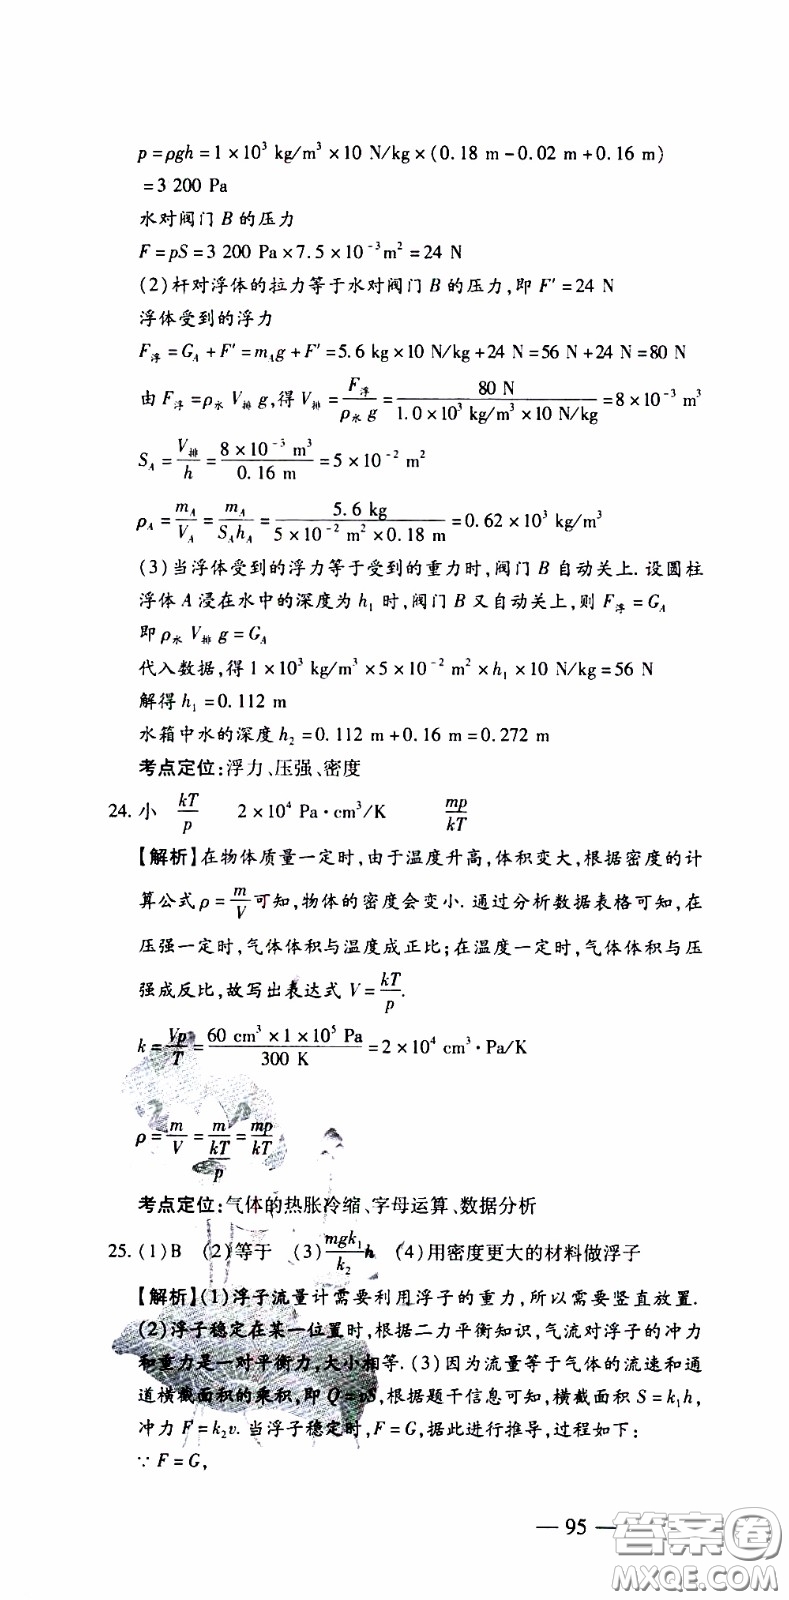 p=ρgh=1×10³ kg/m³×10 N/kg×(0.18 m-0.02 m+0.16 m)
=3 200 Pa
水对阀门 B 的压力
F=pS=3 200 Pa×7.5×10⁻³m²=24 N
(2)杆对浮体的拉力等于水对阀门 B 的压力,即 F′=24 N
浮体受到的浮力
F浮=G_A+F′=m_A g+F′=5.6 kg×10 N/kg+24 N=56 N+24 N=80 N
由 F浮=ρ水 V排 g,得 V排=F浮/(ρ水 g)=80 N/(1.0×10³ kg/m³×10 N/kg)=8×10⁻³ m³
S_A=V排/h=(8×10⁻³ m³)/(0.16 m)=5×10⁻² m²
ρ_A=m_A/V_A=m_A/(S_A h_A)=5.6 kg/(5×10⁻² m²×0.18 m)=0.62×10³ kg/m³
(3)当浮体受到的浮力等于受到的重力时,阀门 B 自动关上.设圆柱
浮体 A 浸在水中的深度为 h₁ 时,阀门 B 又自动关上,则 F浮=G_A
即 ρ水 V排 g=G_A
代入数据,得 1×10³ kg/m³×5×10⁻² m²×h₁×10 N/kg=56 N
解得 h₁=0.112 m
水箱中水的深度 h₂=0.112 m+0.16 m=0.272 m
考点定位:浮力、压强、密度
24. 小 kT/p 2×10⁴ Pa·cm³/K mp/kT
【解析】在物体质量一定时,由于温度升高,体积变大,根据密度的计
算公式 ρ=m/V 可知,物体的密度会变小.通过分析数据表格可知,在
压强一定时,气体体积与温度成正比;在温度一定时,气体体积与压
强成反比,故写出表达式 V=kT/p.
k=Vp/T=(60 cm³×1×10⁵ Pa)/(300 K)=2×10⁴ cm³·Pa/K
ρ=m/V=m/(kT/p)=mp/kT
考点定位:气体的热胀冷缩、字母运算、数据分析
25. (1)B (2)等于 (3)(mgk₁/k₂)h (4)用密度更大的材料做浮子
【解析】(1)浮子流量计需要利用浮子的重力,所以需要竖直放置.
(2)浮子稳定在某一位置时,根据二力平衡知识,气流对浮子的冲力
和重力是一对平衡力,大小相等.(3)因为流量等于气体的流速和通
道横截面积的乘积,即 Q=vS,根据题干信息可知,横截面积 S=k₁h,
冲力 F=k₂v.当浮子稳定时,F=G,据此进行推导,过程如下:
∵F=G,
— 95 —
答案圈
MXQE.COM